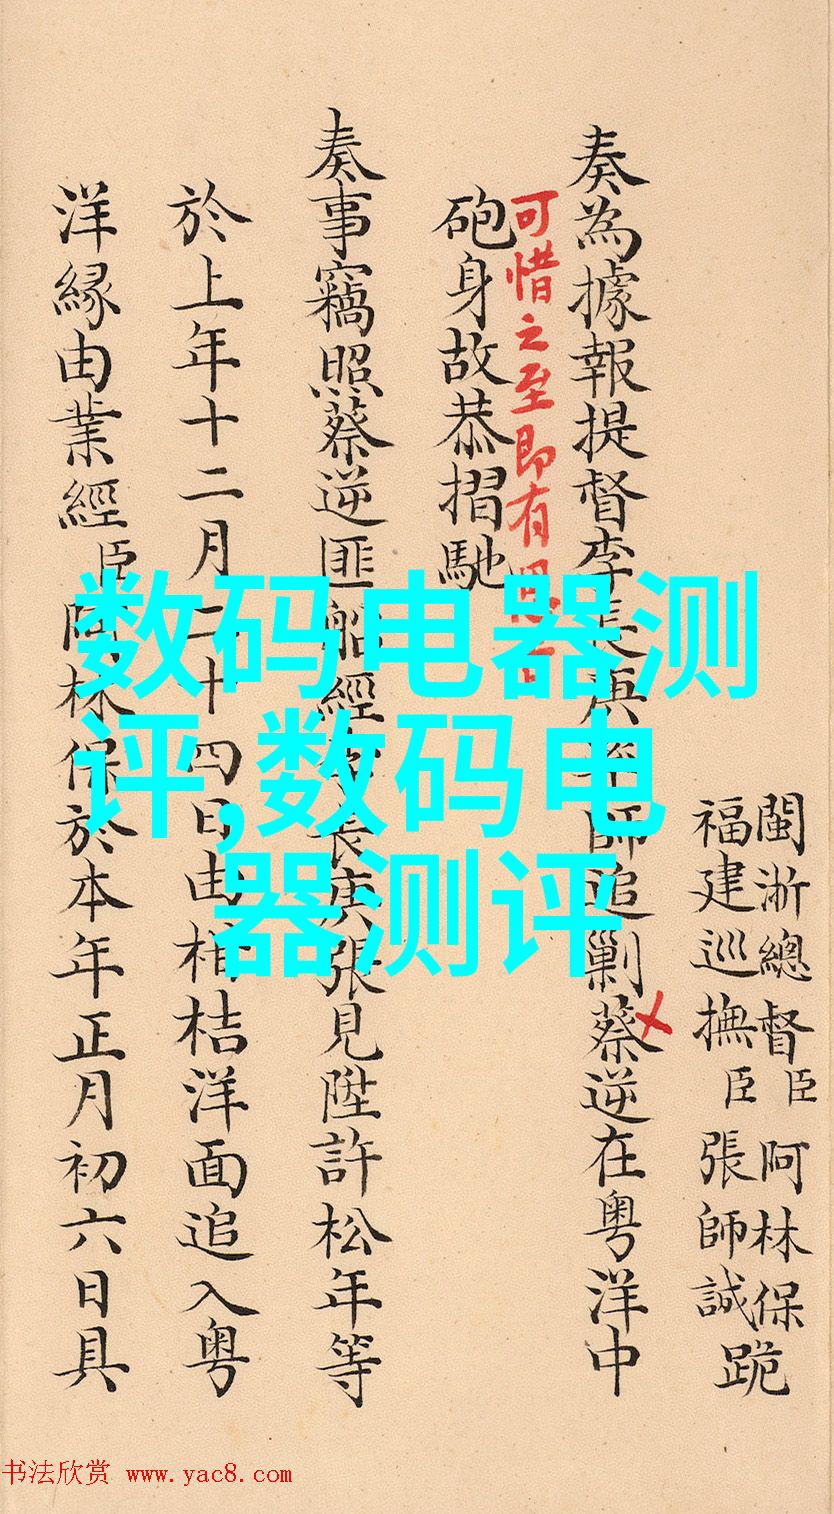 閩浙總督臣阿林保
福建巡撫臣張師誠
跪
奏為據報提督李長庚師追剿蔡逆在粵洋中
可惜之至即有
砲身故恭摺馳
奏事竊照蔡逆匪船經長庚張見陞許松年等
於上年十二月二十四日由柑桔洋面追入粵
洋緣由業經臣阿林保於本年正月初六日具
数码电器测
评,数码电
器测评
书法欣赏 www.yac8.com